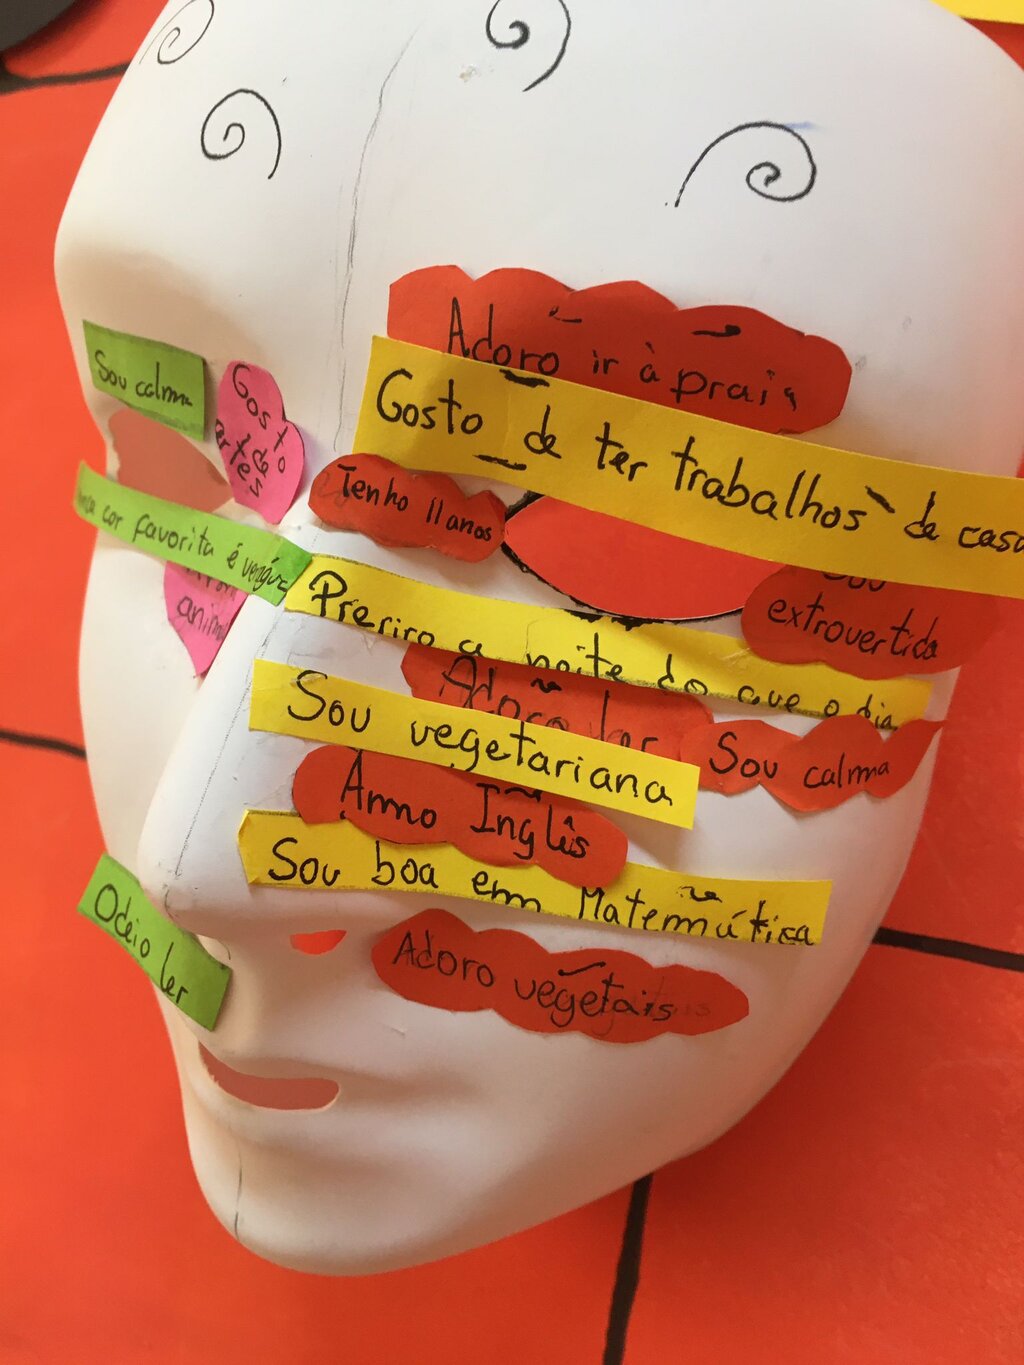 Adoro ir à praia
Gosto de ter trabalhos de casa
Sou calma
Gosto
de
artes
Tenho 11 anos
cor favorita é
extrovertida
Preriro a noite do que o dia
Adoro ler
Sou vegetariana
Sou calma
Ammo Inglês
Sou boa em Matemática
Odeio ler
Adoro vegetais